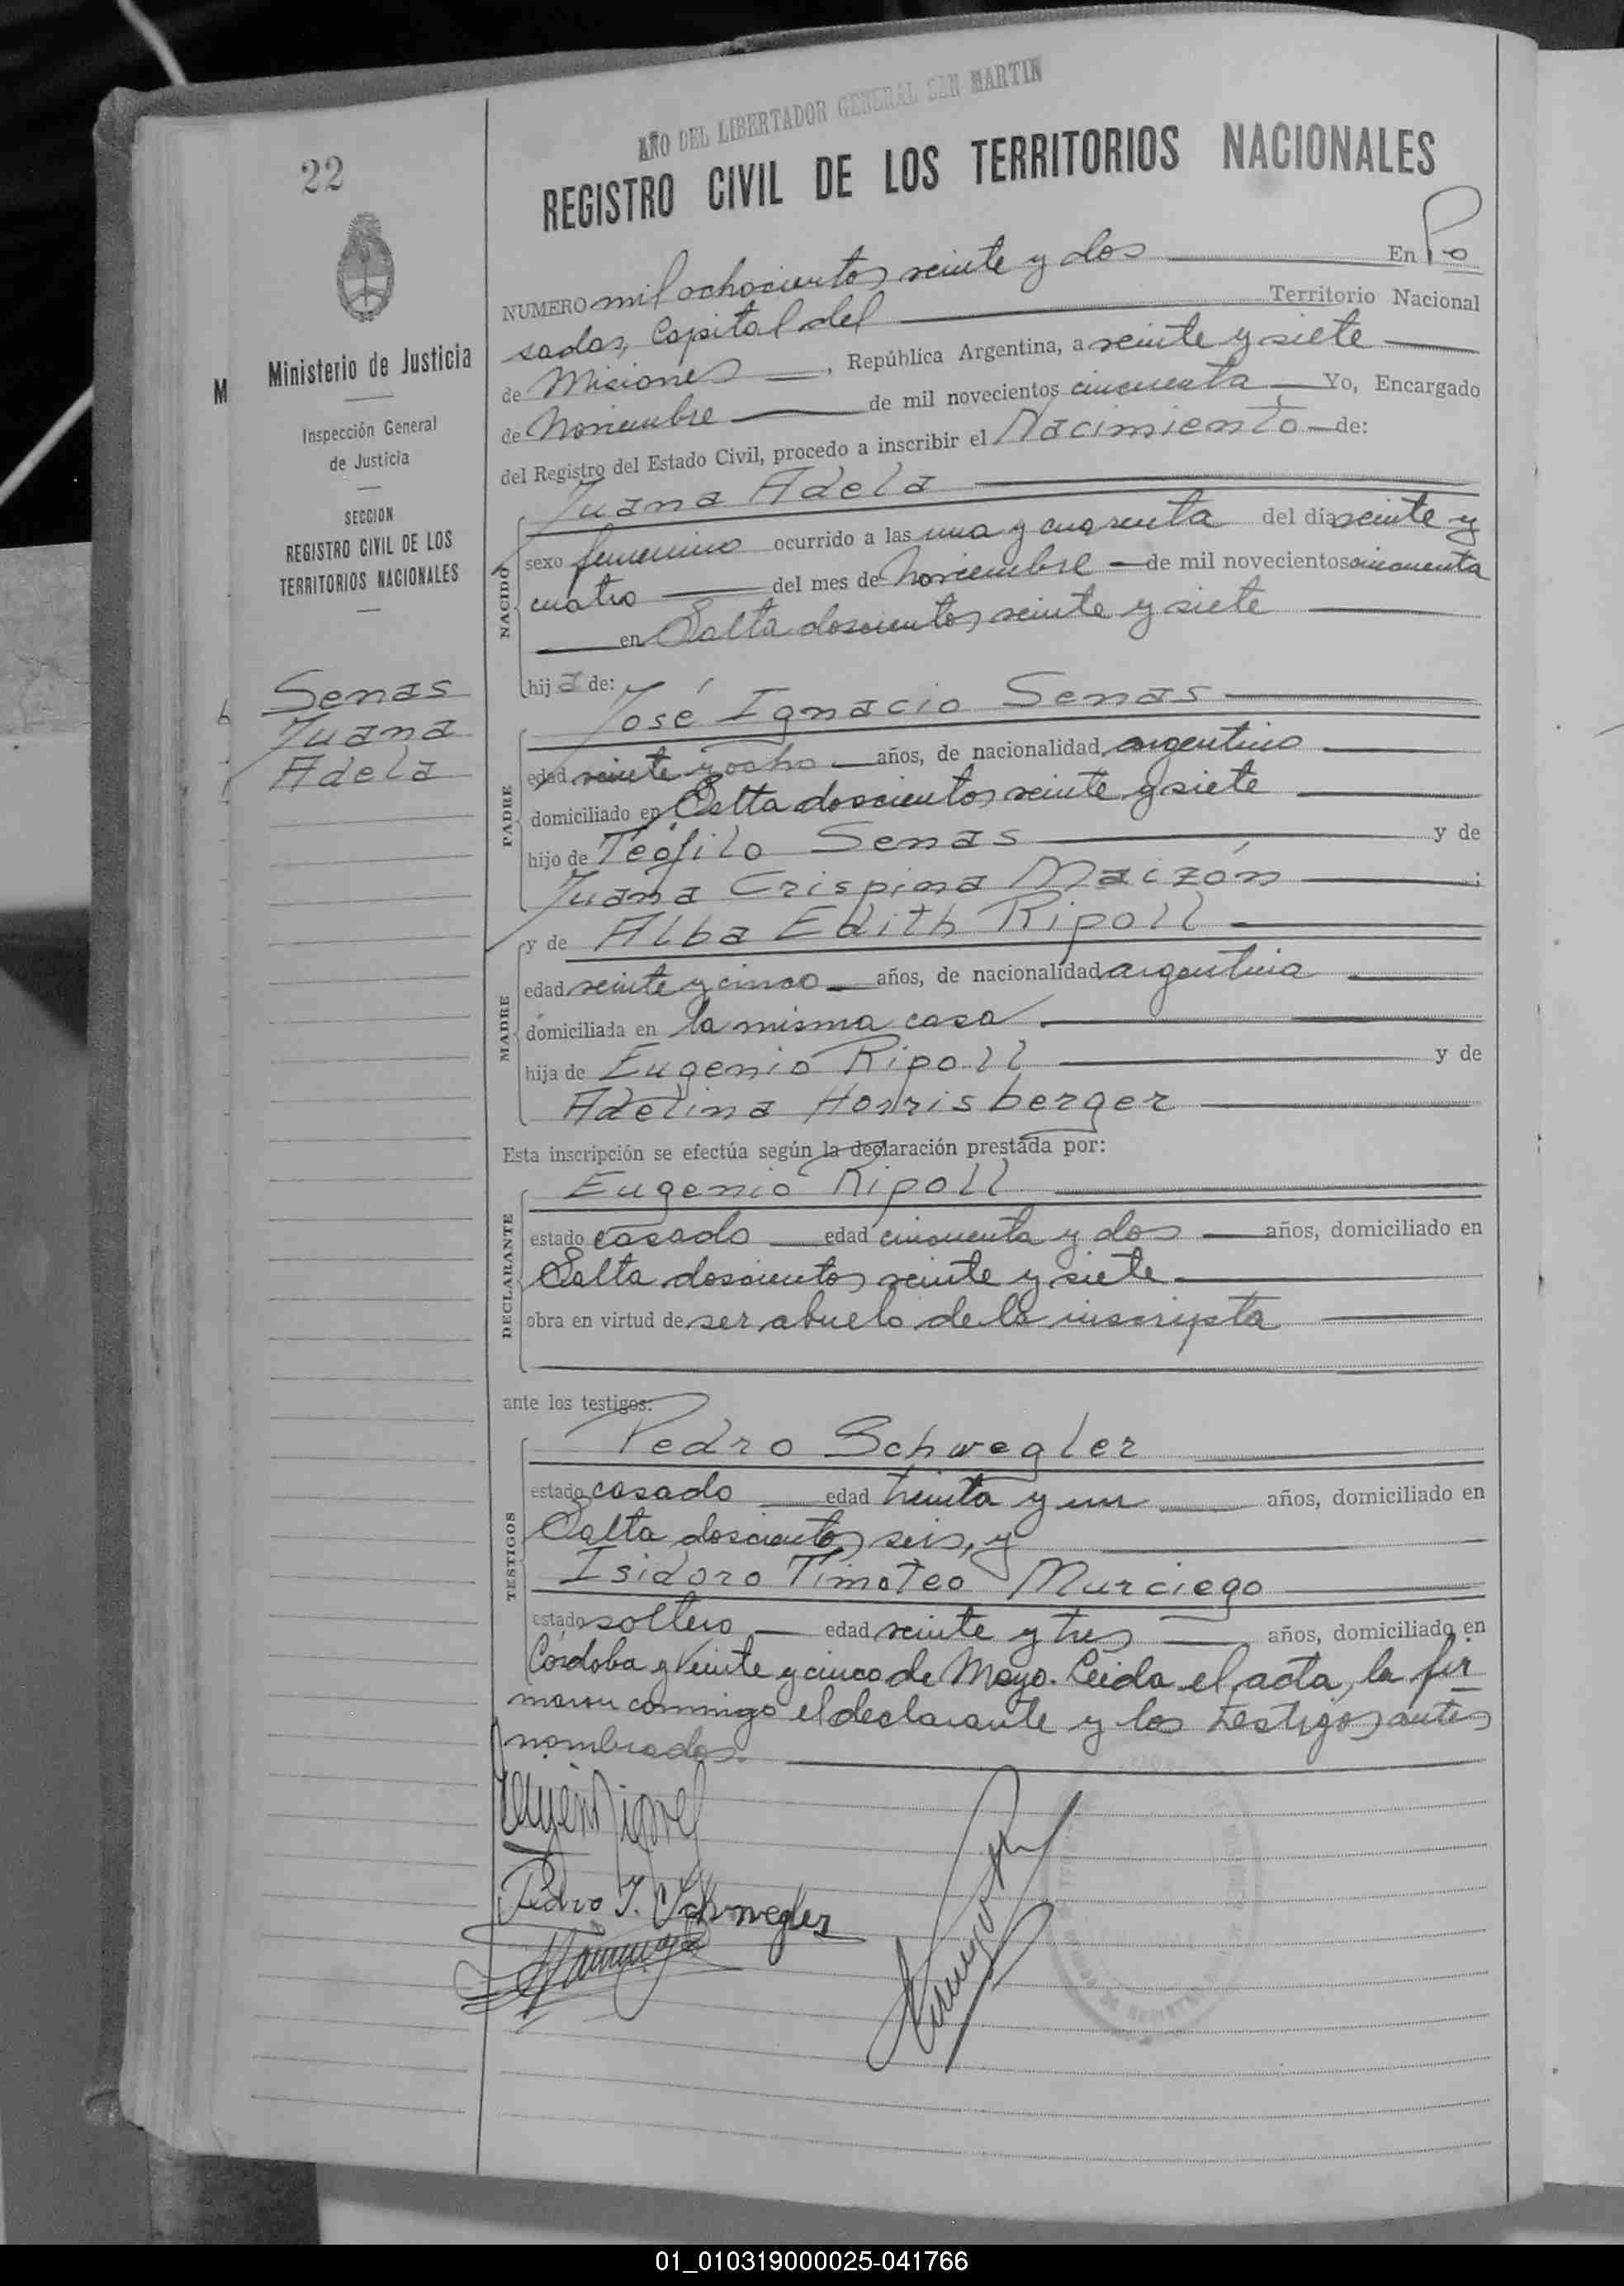 AÑO DEL LIBERTADOR GENERAL SAN MARTIN
REGISTRO CIVIL DE LOS TERRITORIOS NACIONALES
22
Ministerio de Justicia
M
Inspección General
de Justicia
SECCION
REGISTRO CIVIL DE LOS
TERRITORIOS NACIONALES
Senas
Juana
Adela
NUMERO mil ochocientos veinte y dos En Po
sadas, Capital del Territorio Nacional
de Misiones, República Argentina, a veinte y siete
de Noviembre de mil novecientos cincuenta Yo, Encargado
del Registro del Estado Civil, procedo a inscribir el Nacimiento de:
NACIDO
Juana Adela
sexo femenino ocurrido a las una y cuarenta del día veinte y
cuatro del mes de noviembre de mil novecientos cincuenta
en Salta doscientos veinte y siete
hija de:
PADRE
José Ignacio Senas
edad veinte y ocho años, de nacionalidad argentino
domiciliado en Salta doscientos veinte y siete
hijo de Teófilo Senas y de
Juana Crispina Maizón;
MADRE
y de Alba Edith Ripoll
edad veinte y cinco años, de nacionalidad argentina
domiciliada en la misma casa
hija de Eugenio Ripoll y de
Adelina Horrisberger
Esta inscripción se efectúa según la declaración prestada por:
DECLARANTE
Eugenio Ripoll
estado casado edad cincuenta y dos años, domiciliado en
Salta doscientos veinte y siete
obra en virtud de ser abuelo de la inscripta
ante los testigos:
TESTIGOS
Pedro Schwegler
estado casado edad treinta y un años, domiciliado en
Salta doscientos seis, y
Isidoro Timoteo Murciego
estado soltero edad veinte y tres años, domiciliado en
Córdoba y Veinte y cinco de Mayo. Leida el acta, la fir
maron conmigo el declarante y los testigos antes
nombrados.
Pedro J. Schwegler
01_010319000025-041766